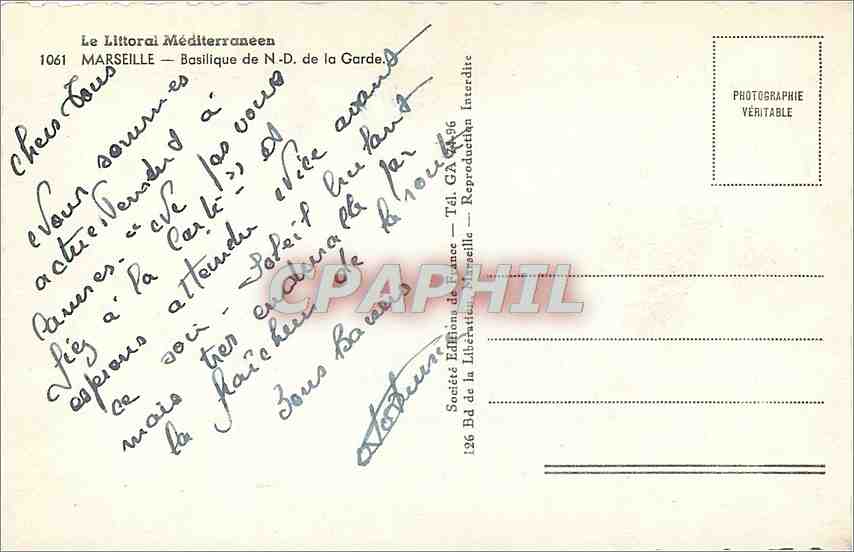 Le Littoral Méditerraneen
1061 MARSEILLE — Basilique de N.-D. de la Garde.
Chers Tous
Nous sommes
actuellement à
Cannes - " Ne pas vous
fiez à la carte " et
espérons atteindre Nice avant
ce soir - Soleil brulant
mais très endurable par
la fraîcheur de la route
Bons baisers
PHOTOGRAPHIE
VÉRITABLE
Société Editions de France — Tél. GA 96
126 Bd de la Libération, Marseille — Reproduction Interdite
CPAPHIL